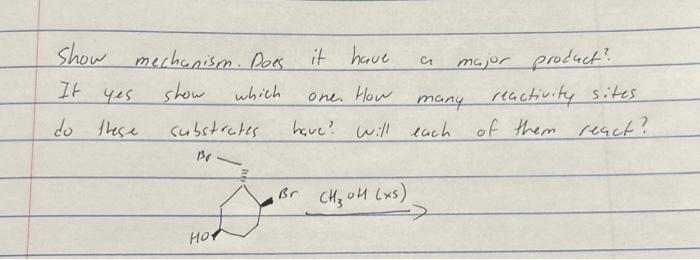 Show mechanism. Does it have a major product?
If yes show which one. How many reactivity sites
do these substrates have? will each of them react?
Br
Br CH3OH (xs)
HO